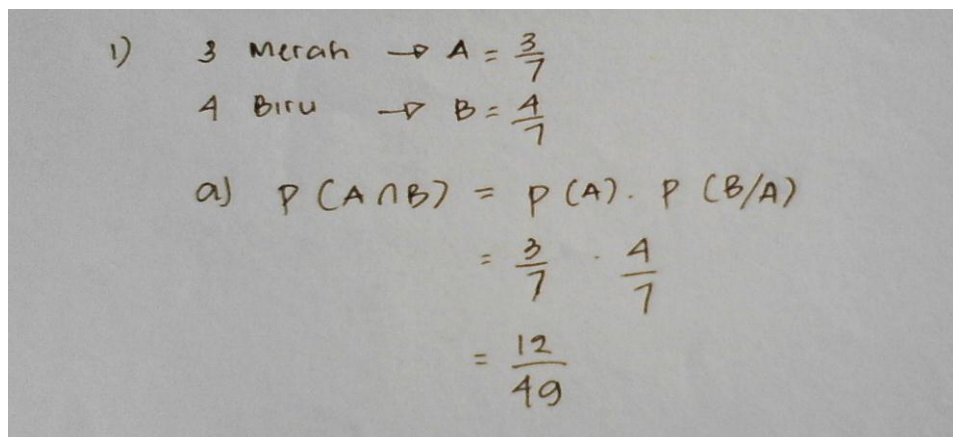 1) 3 Merah → A = 3/7
4 Biru → B = 4/7
a) P (A∩B) = P (A). P (B/A)
= 3/7 . 4/7
= 12/49